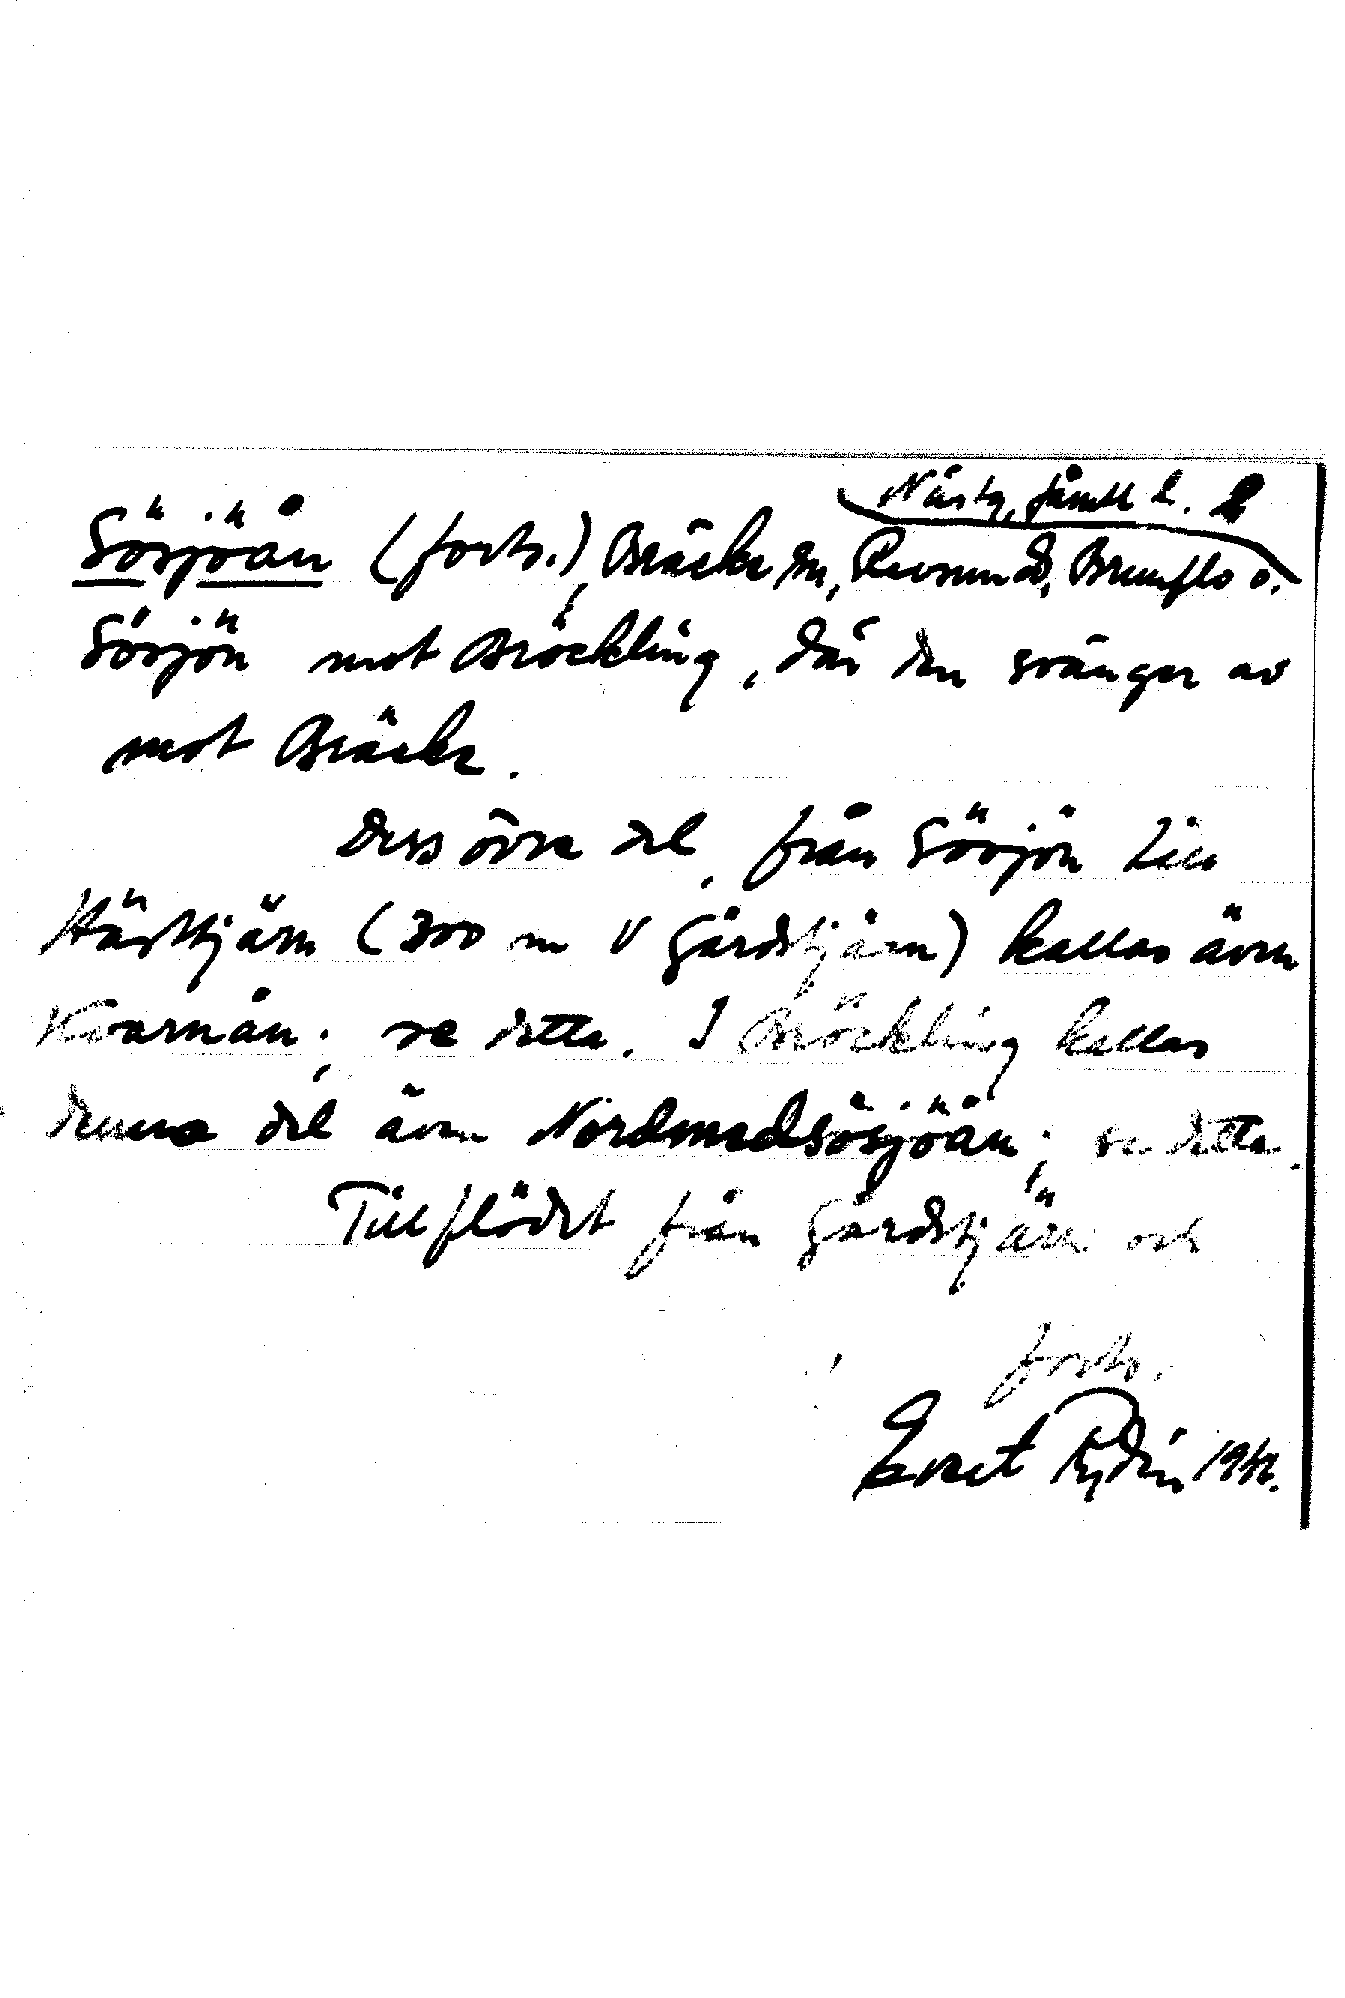 Näsby, Jämtl l. 2
Sösjöån (forts.), Bräcke sn, Revsunds, Brunflo o.
Sösjön mot Bräckling, där den svänger av
mot Bräcke.
Dess övre del, från Sösjön till
Hästtjärn (300 m V Gårdstjärn) kallas även
Kvarnån; se detta. I Bräckling kallas
denna del även Nordmedsösjöån; se detta.
Tillflödet från Gårdstjärn och
forts.
Evret Rydin 1941.